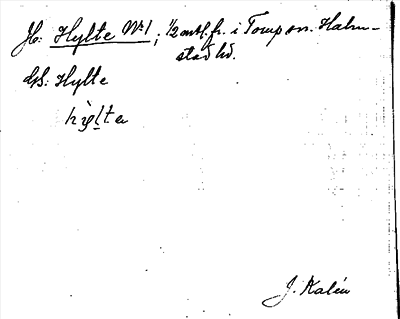 Jb: Hylte No 1; 1/2 mtl. fr. i Torup sn. Halm-
stad hd.
Us: Hylte
hỳlta
J. Kalén